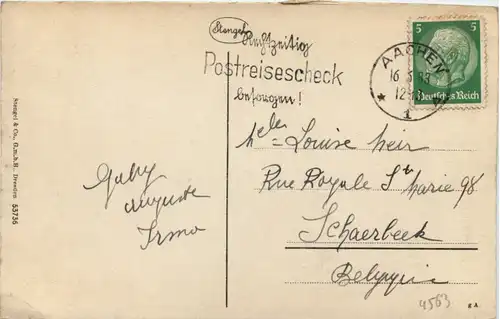 Stengel
Rechtzeitig
Postreisescheck
besorgen!
AACHEN
16.5.
12-13
1
5 5
Deutsches Reich
Stengel & Co., G.m.b.H., Dresden 53736
Mele = Louise
Rue Royale Ste Marie 98
Schaerbeek
Belgique
Gaby
Auguste
Irma
4563